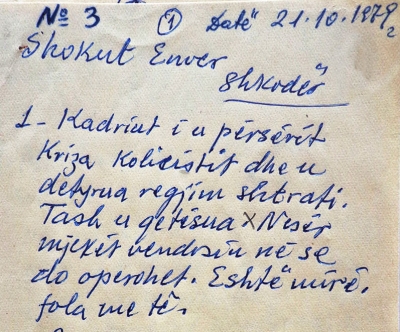 № 3 ① Datë 21.10.1979
Shokut Enver
Shkodër
1- Kadriut i u përsërit
Kriza Kolicistit dhe u
detyrua regjim shtrati.
Tash u qetësua × Nesër
mjekët vendosin në se
do operohet. Eshtë mirë,
fola me të.